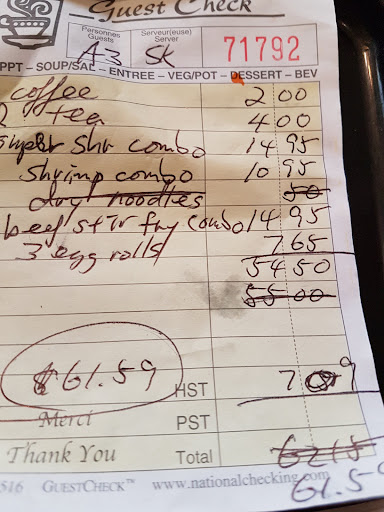 Guest Check
Personnes Guests Serveur(euse) Server
A3 SK 71792
PPT – SOUP/SAL – ENTREE – VEG/POT – DESSERT – BEV
coffee 2 00
2 tea 4 00
shr combo 14 95
shrimp combo 10 95
dry noodles 50
beef stir fry combo 14 95
3 egg rolls 7 65
54 50
55 00
$61.59 HST 7 09
Merci PST
Thank You Total 62 15
516 GUESTCHECK™ www.nationalchecking.com
61.5